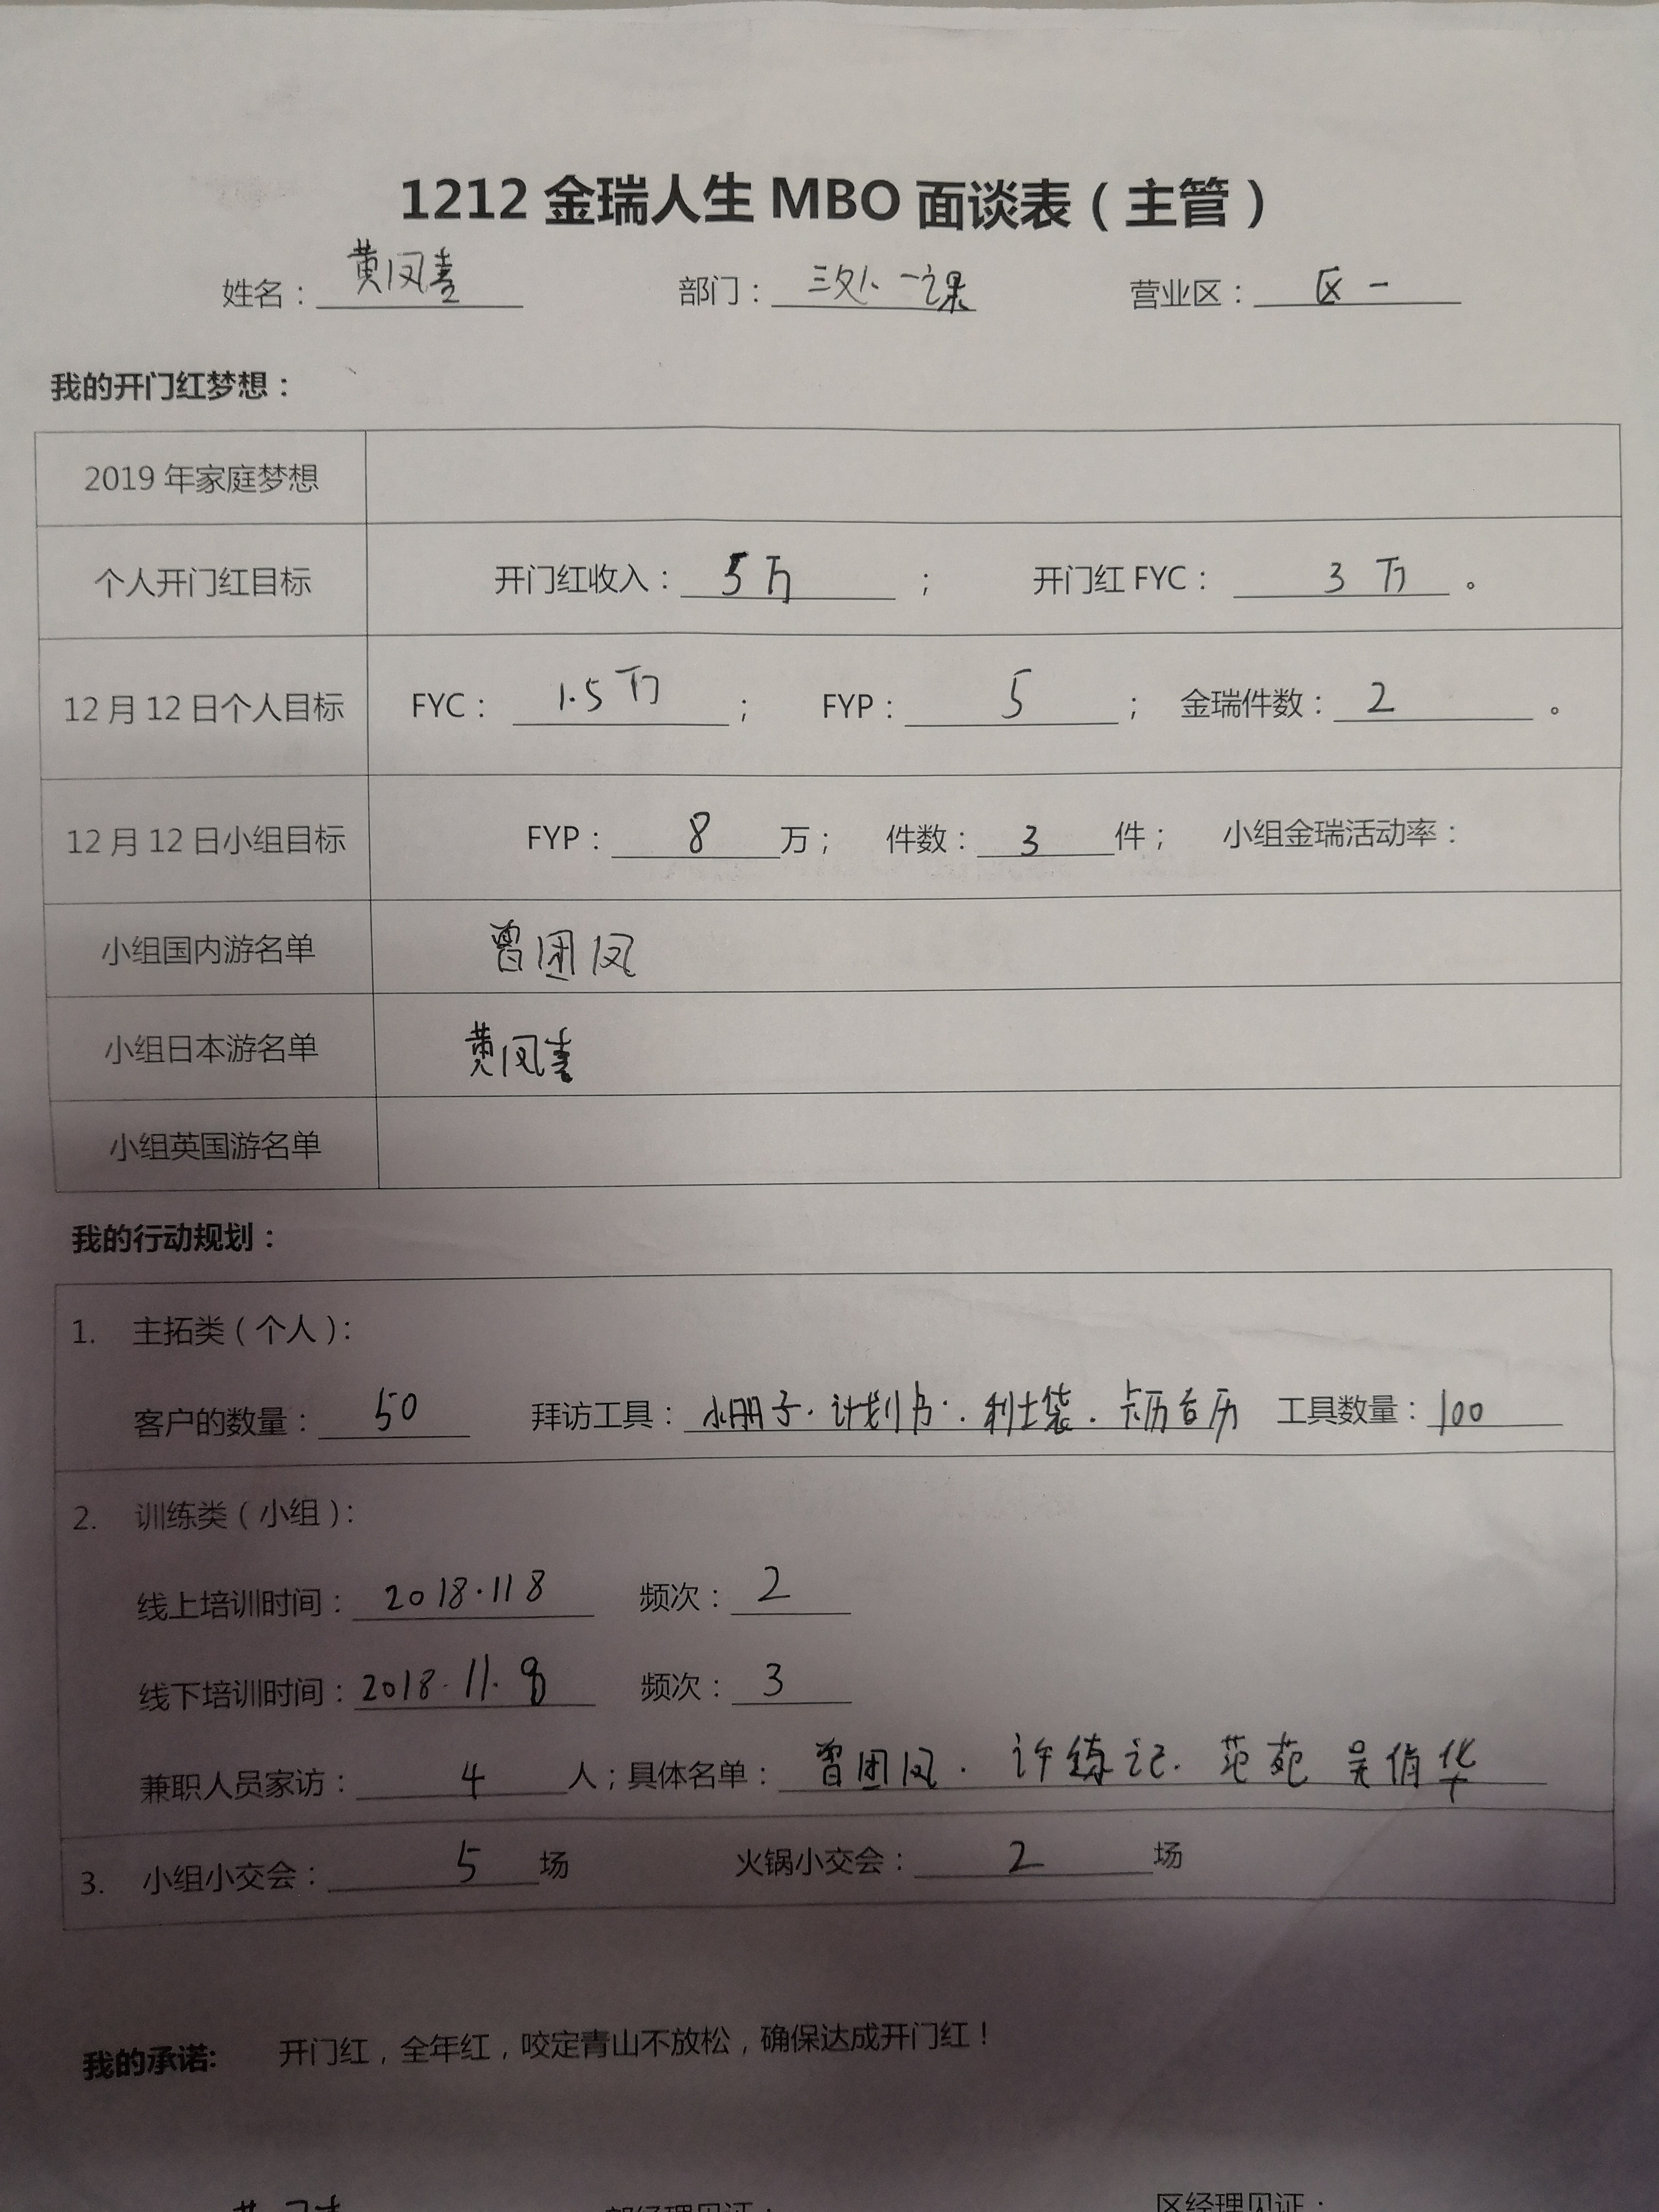 1212 金瑞人生 MBO 面谈表（主管）
姓名：黄凤 部门：三处一课 营业区：区一
我的开门红梦想：
2019 年家庭梦想
个人开门红目标 开门红收入：5万； 开门红 FYC：3万。
12 月 12 日个人目标 FYC：1.5万； FYP：5； 金瑞件数：2。
12 月 12 日小组目标 FYP：8万； 件数：3件； 小组金瑞活动率：
小组国内游名单 曾团凤
小组日本游名单 黄凤
小组英国游名单
我的行动规划：
1. 主拓类（个人）：
客户的数量：50 拜访工具：小册子·计划书·利士袋·卡历台历 工具数量：100
2. 训练类（小组）：
线上培训时间：2018·118 频次：2
线下培训时间：2018·11·9 频次：3
兼职人员家访：4人；具体名单：曾团凤·许练记·范苑 吴俏华
3. 小组小交会：5场 火锅小交会：2场
我的承诺: 开门红，全年红，咬定青山不放松，确保达成开门红！
部经理见证： 区经理见证：